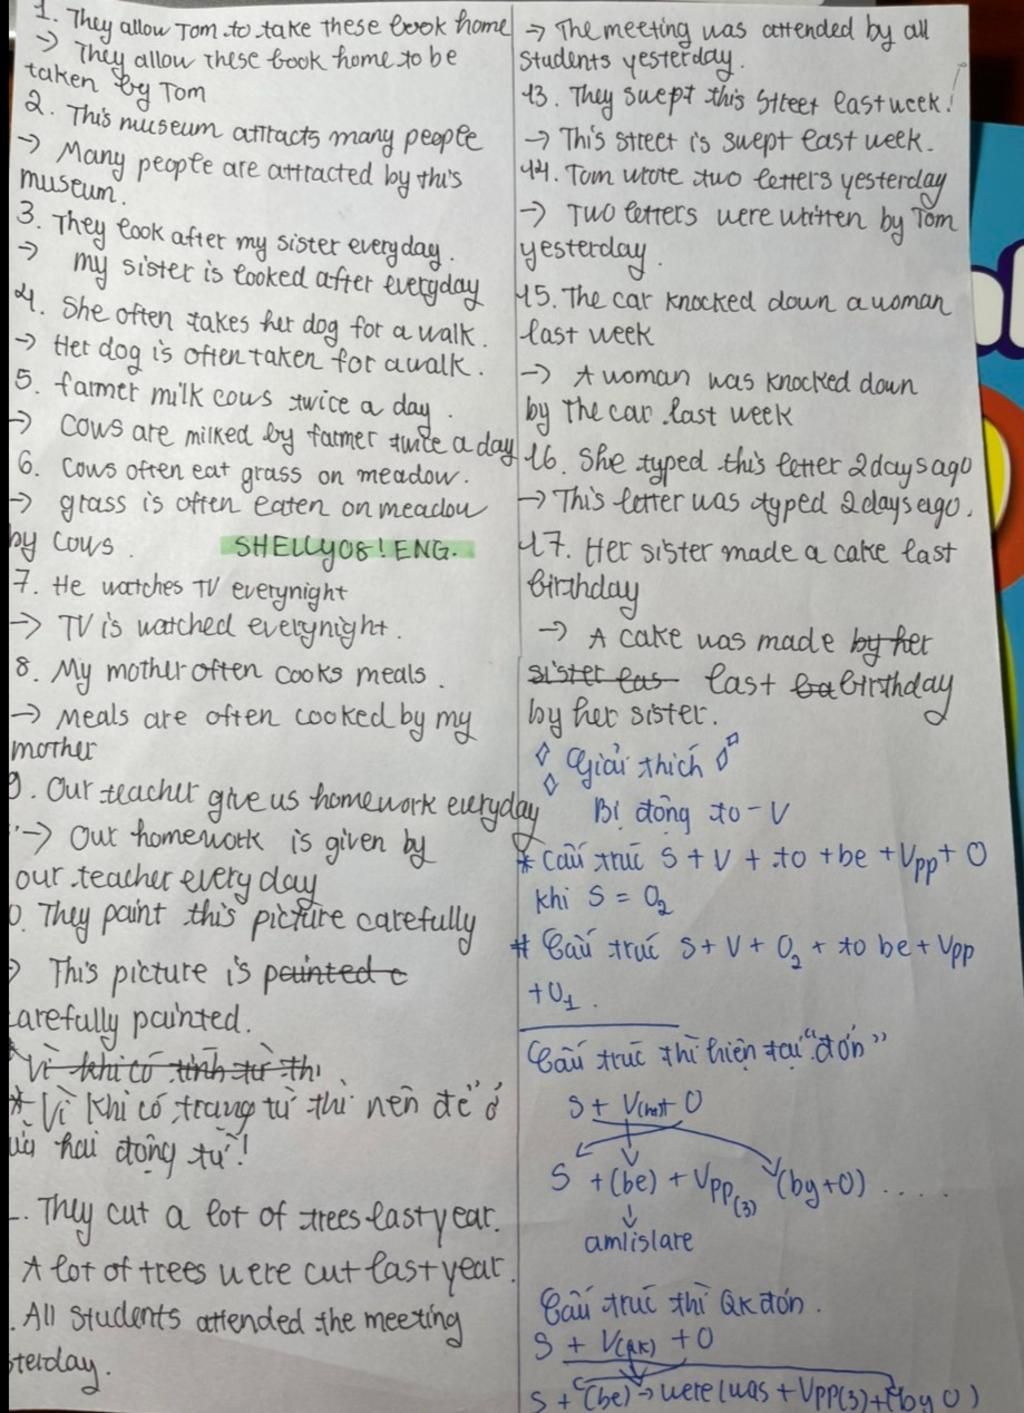 1. They allow Tom to take these book home
→ They allow these book home to be
taken by Tom
2. This museum attracts many people
→ Many people are attracted by this
museum.
3. They look after my sister everyday.
→ my sister is looked after everyday
4. She often takes her dog for a walk.
→ Her dog is often taken for a walk.
5. farmer milk cows twice a day.
→ cows are milked by farmer twice a day
6. Cows often eat grass on meadow.
→ grass is often eaten on meadow
by cows.
SHELLY08!ENG.
7. He watches TV everynight
→ TV is watched everynight.
8. My mother often cooks meals.
→ Meals are often cooked by my
mother
9. Our teacher give us homework everyday
→ Our homework is given by
our teacher every day
0. They paint this picture carefully
→ This picture is painted c
carefully painted.
* Vì khi có tính từ thì
* Vì khi có trạng từ thì nên để ở
giữa hai động từ!
. They cut a lot of trees last year.
A lot of trees were cut last year.
. All students attended the meeting
sterday.
→ The meeting was attended by all
students yesterday.
13. They swept this street last week.
→ This street is swept last week.
14. Tom wrote two letters yesterday
→ Two letters were written by Tom
yesterday.
15. The car knocked down a woman
last week
→ A woman was knocked down
by the car last week
16. She typed this letter 2 days ago
→ This letter was typed 2 days ago.
17. Her sister made a cake last
birthday
→ A cake was made by her
sister las last ba birthday
by her sister.
Giải thích
Bị động to-V
* Cấu trúc S + V + to + be + Vpp + O
khi S = O2
* Cấu trúc S + V + O2 + to be + Vpp
+ O1.
Cấu trúc thì hiện tại "đơn"
S + V(htđ) + O
S + (be) + Vpp(3) (by+O) .....
am/is/are
Cấu trúc thì QK đơn.
S + V(QK) + O
S + (be) → were/was + Vpp(3) + (by O)